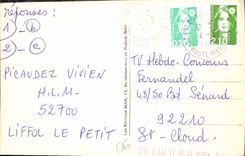 réponses :
1 - b
2 - c
PICAUDEZ VIVIEN
H.L.M.
52700
LIFFOL LE PETIT
TV Hebdo-Concours
Fernandel
48/50 Bd. Sénard
92210
St-Cloud.
0,20
2,10